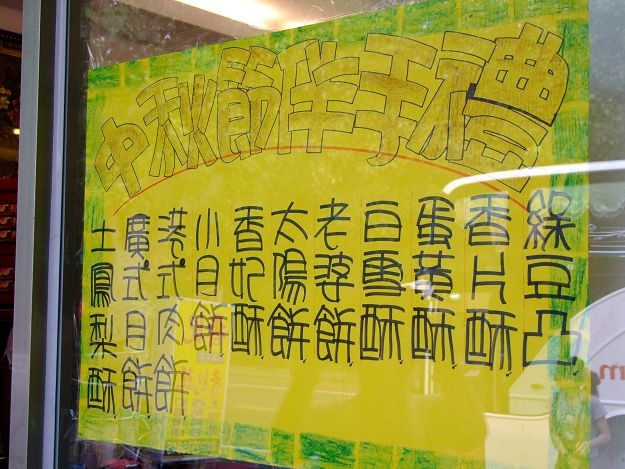 中秋節伴手禮
綠豆凸
香片酥
蛋黃酥
白雪酥
老婆餅
太陽餅
香妃酥
小月餅
港式肉餅
廣式月餅
土鳳梨酥